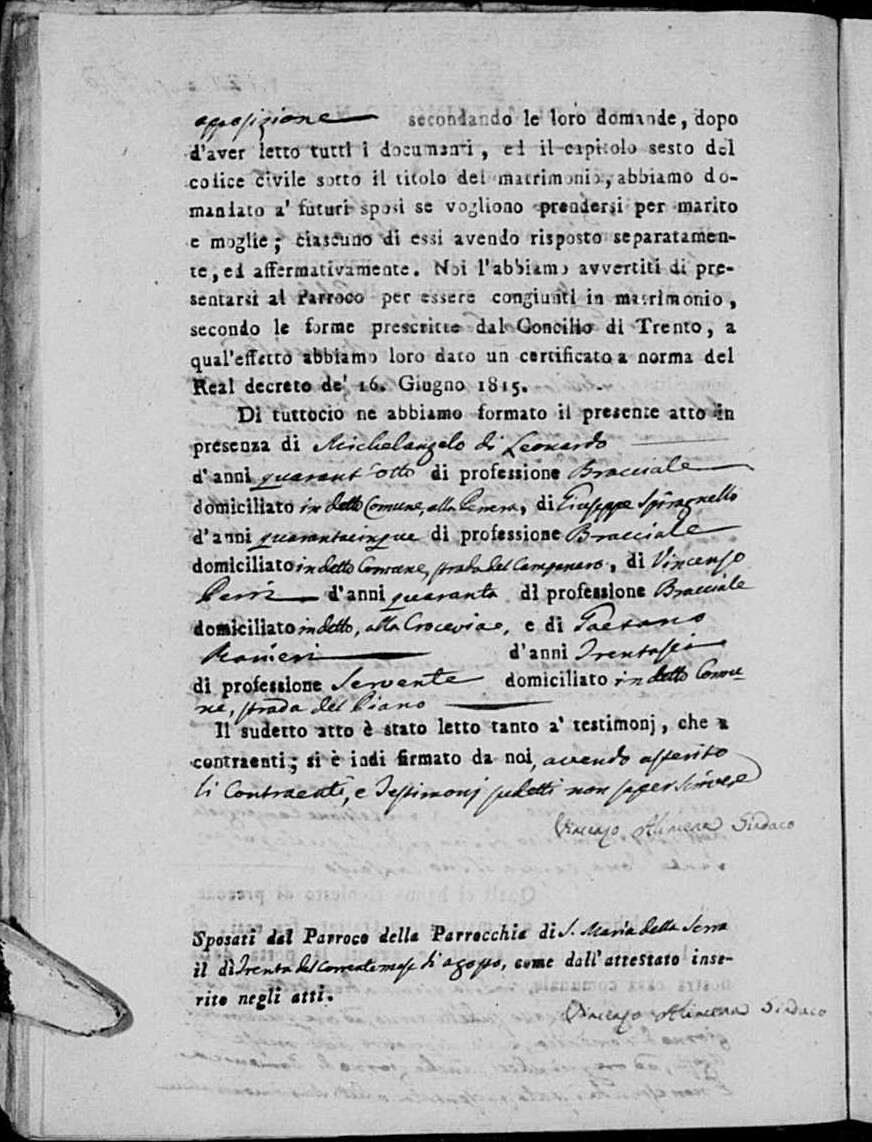 opposizione secondando le loro domande, dopo
d'aver letto tutti i documenti, ed il capitolo sesto del
codice civile sotto il titolo del matrimonio, abbiamo do-
mandato a' futuri sposi se vogliono prendersi per marito
e moglie; ciascuno di essi avendo risposto separatamen-
te, ed affermativamente. Noi l'abbiamo avvertiti di pre-
sentarsi al Parroco per essere congiunti in matrimonio,
secondo le forme prescritte dal Concilio di Trento, a
qual'effetto abbiamo loro dato un certificato a norma del
Real decreto de' 16. Giugno 1815.
Di tuttociò ne abbiamo formato il presente atto in
presenza di Michelangelo di Leonardo
d'anni quarant'otto di professione Bracciale
domiciliato in detto Comune, alla, di Giuseppe Spiragnello
d'anni quarantacinque di professione Bracciale
domiciliato in detto Comune, strada del Campanaro, di Vincenzo
d'anni quaranta di professione Bracciale
domiciliato in detto, alla Crocevia, e di Gaetano
Ranieri d'anni Trentasei
di professione Servente domiciliato in detto Comu-
ne, strada del Piano
Il sudetto atto è stato letto tanto a' testimonj, che a
contraenti; si è indi firmato da noi, avendo asserito
li Contraenti, e Testimonj sudetti non saper scrivere
Vincenzo Alimena Sindaco
Sposati dal Parroco della Parrocchia di S. Maria della Serra
il dì Trenta del corrente mese di agosto, come dall'attestato inse-
rito negli atti.
Vincenzo Alimena Sindaco